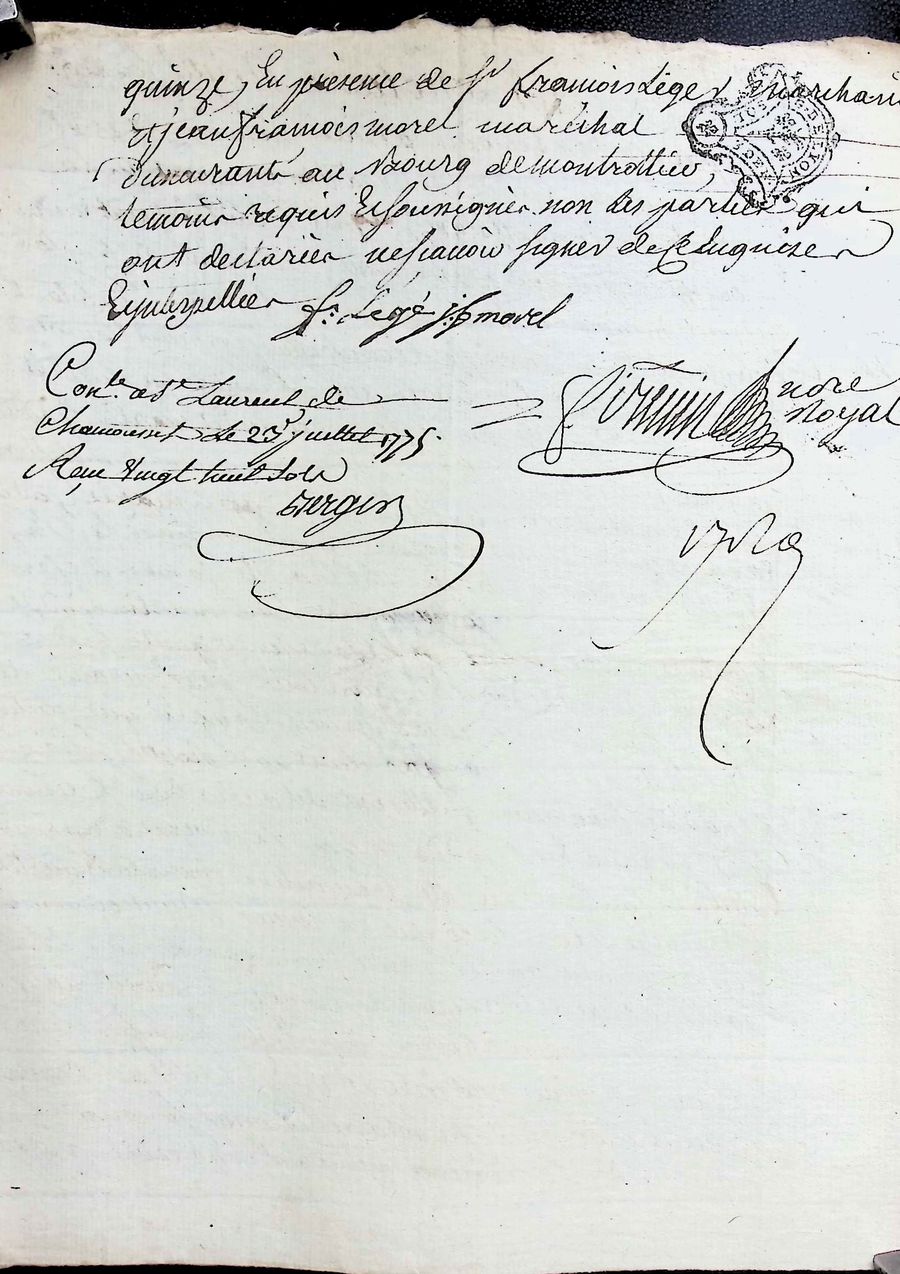 quinze, En presence de Sr francois Léger marchand
Et jean francois morel maréchal
demeurants au Bourg de montrottier,
temoins requis Et soussignés non les parties qui
ont declarées ne scavoir signer de ce Enquises
Et interpellées fs: Legé j: f: morel
Conle. a St Laurent de
Chamousset le 23e juillet 1775.
Reçu vingt huit sols
nore
Royal
DE LYON